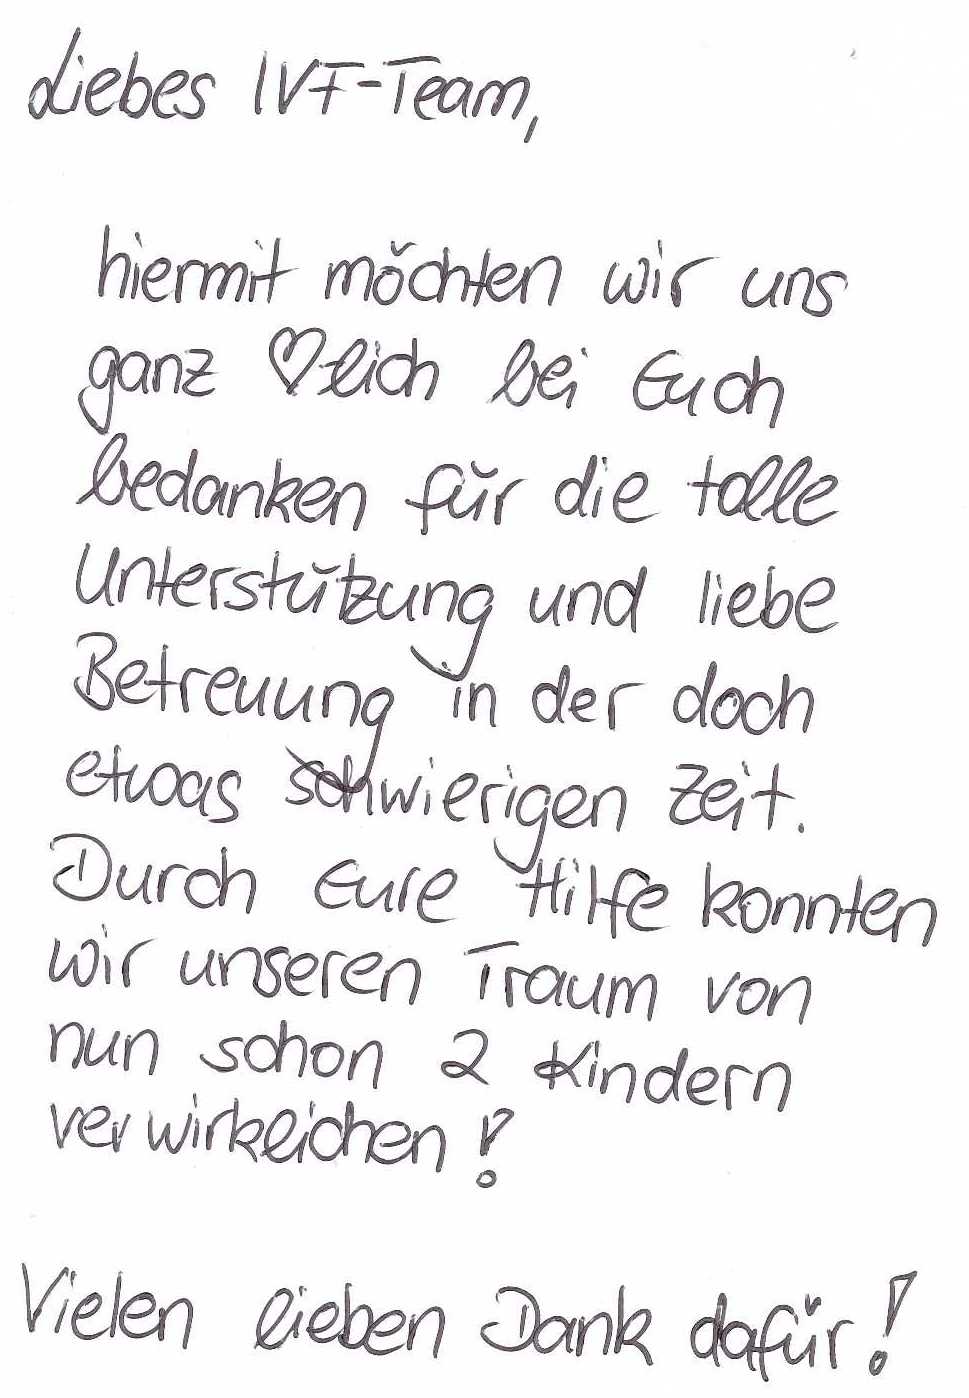 Liebes IVF-Team,
hiermit möchten wir uns
ganz ♡lich bei Euch
bedanken für die tolle
Unterstützung und liebe
Betreuung in der doch
etwas schwierigen Zeit.
Durch Eure Hilfe konnten
wir unseren Traum von
nun schon 2 Kindern
verwirklichen!
Vielen lieben Dank dafür!